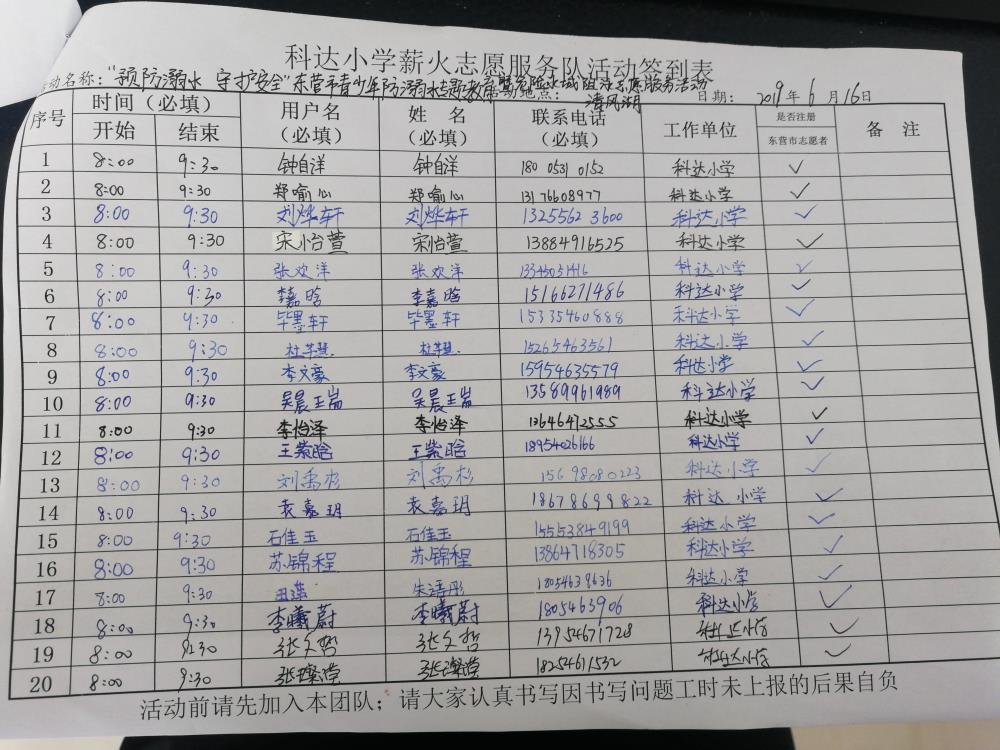 科达小学薪火志愿服务队活动签到表
活动名称："预防溺水 守护安全"东营市青少年防溺水专题教育暨危险水域 志愿服务活动 活动地点：清风湖 日期：2019年6月16日
序号 时间（必填） 用户名（必填） 姓 名（必填） 联系电话（必填） 工作单位 是否注册东营市志愿者 备 注
开始 结束
1 8:00 9:30 钟自洋 钟自洋 180 0531 0152 科达小学 ✓
2 8:00 9:30 郑喻心 郑喻心 131 76608977 科达小学 ✓
3 8:00 9:30 刘烨轩 刘烨轩 1325562 3600 科达小学 ✓
4 8:00 9:30 宋怡萱 宋怡萱 13884916525 科达小学 ✓
5 8:00 9:30 张欢洋 张欢洋 科达小学 ✓
6 8:00 9:30 李嘉晗 李嘉晗 15166271486 科达小学 ✓
7 8:00 9:30 毕墨轩 毕墨轩 15335460888 科达小学 ✓
8 8:00 9:30 杜芊慧 杜芊慧 15265463561 科达小学 ✓
9 8:00 9:30 李文豪 李文豪 15954635579 科达小学 ✓
10 8:00 9:30 吴晨玉嵩 吴晨玉嵩 13589961989 科达小学 ✓
11 8:00 9:30 李怡泽 李怡泽 13646472555 科达小学 ✓
12 8:00 9:30 王紫晗 王紫晗 18954026166 科达小学 ✓
13 8:00 9:30 刘禹杉 刘禹杉 156 98080223 科达小学 ✓
14 8:00 9:30 袁嘉玥 袁嘉玥 18678699822 科达小学 ✓
15 8:00 9:30 石佳玉 石佳玉 15553849199 科达小学 ✓
16 8:00 9:30 苏锦程 苏锦程 13864718305 科达小学 ✓
17 8:00 9:30 朱语彤 18054639636 科达小学 ✓
18 8:00 9:30 李曦蔚 李曦蔚 1805463906 科达小学 ✓
19 8:00 9:30 张文哲 张文哲 13954671728 科达小学 ✓
20 8:00 9:30 张璨滢 张璨滢 18254611532 科达小学 ✓
活动前请先加入本团队；请大家认真书写因书写问题工时未上报的后果自负